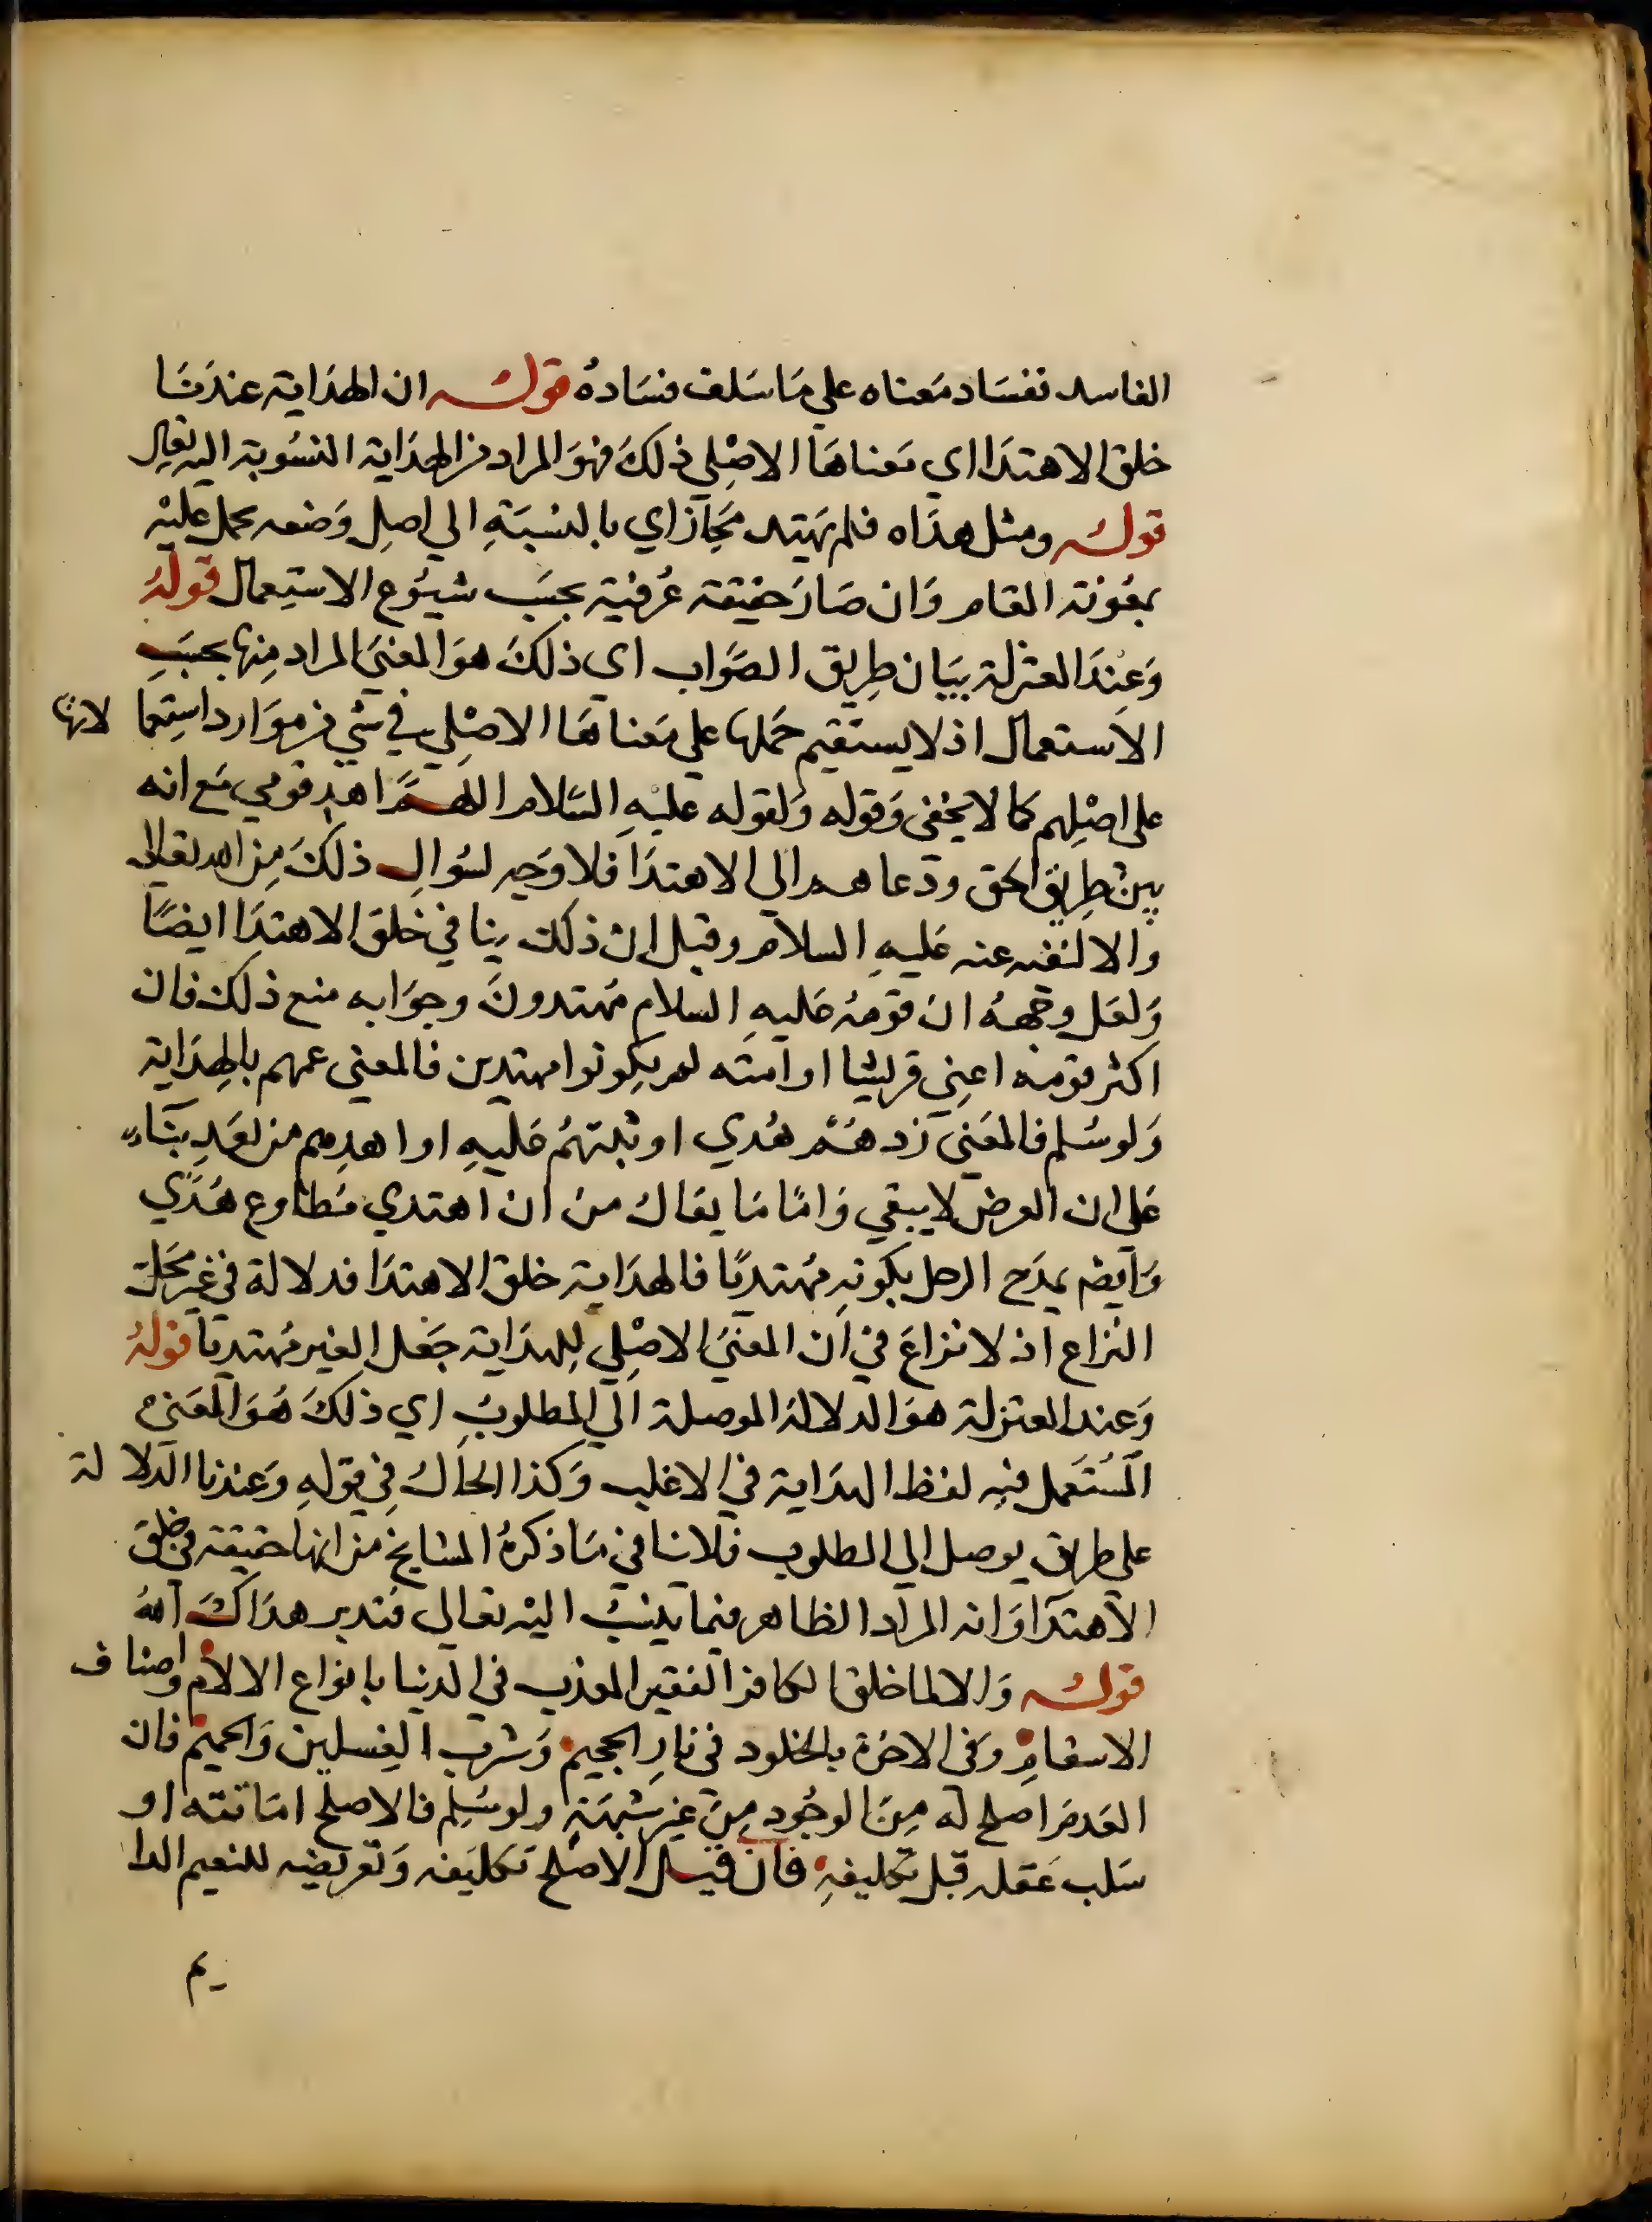 الفاسد نفساد معناه علي ما سلف فساده قوله ان الهداية عندنا
خلق الاهتدا اي معناها الاصلي ذلك فهو المراد من الهداية المنسوبة اليه تعالي
قوله ومثل هداه فلم يهتد مجاز اي بالنسبة الي اصل وضعه يحمل عليه
بمعونة المقام وان صار حقيقة عرفية بحسب شيوع الاستعمال قوله
وعند المعتزلة بيان طريق الصواب اي ذلك هو المعني المراد منها بحسب
الاستعمال اذ لا يستقيم حملها علي معناها الاصلي في شي من موارد استعمالاتها
على اصلهم كما لا يخفى وقوله ولقوله عليه السلام اللهم اهد قومي مع انه
بين طريق الحق ودعاهم الي الاهتدا فلا وجه لسوال ذلك من الله تعالى
والا لنفه عنه عليه السلام وقيل ان ذلك ينافي خلق الاهتدا ايضا
ولعل وجهه ان قومه عليه السلام مهتدون وجوابه منع ذلك فان
اكثر قومه اعني قريشا او امته لم يكونوا مهتدين فالمعنى عمهم بالهداية
ولو سلم فالمعني زدهم هدي او ثبتهم عليه او اهدهم من بعد بناء
علي ان العرض لا يبقي واما ما يقال من ان اهتدي مطاوع هدي
وايضه يمدح الرجل بكونه مهتديا فالهداية خلق الاهتدا فدلالة في غير محل
النزاع اذ لا نزاع في ان المعني الاصلي للهداية جعل الغير مهتديا قوله
وعند المعتزلة هو الدلالة الموصلة الي المطلوب اي ذلك هو المعني
المستعمل فيه لفظ الهداية في الاغلب وكذا الحال في قوله وعندنا الدلالة
على طريق يوصل الي المطلوب فلا ينافي ما ذكره المشايخ من انها حقيقة في خلق
الاهتدا وانه المراد الظاهر فيما ينسب اليه تعالي فتدبر هداك الله
قوله والا لما خلق الكافر الفقير المعذب في الدنيا بانواع الالام واصناف
الاسقام وفى الاخرة بالخلود في نار الجحيم وشرب الغسلين والحميم فان
العدم اصلح له من الوجود من غير شبهة ولو سلم فالاصلح اماتته او
سلب عقله قبل تكليفه فان قيل الاصلح تكليفه وتعريضه للنعيم الدا
يم